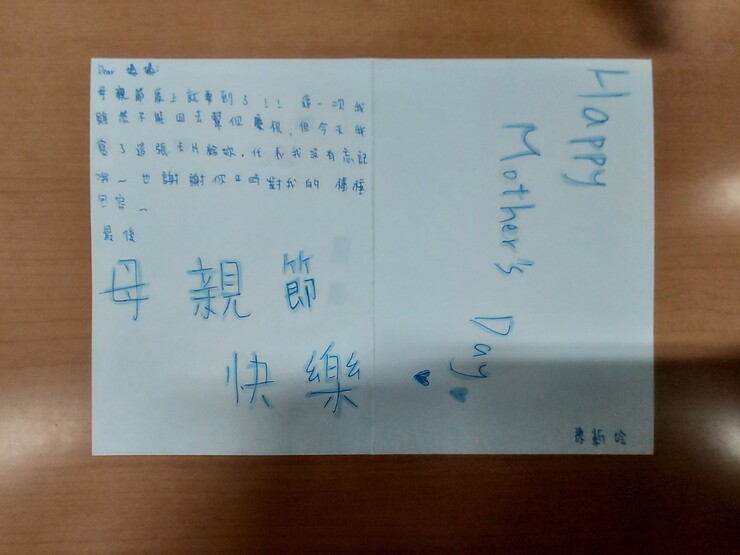 Dear 媽媽:
母親節馬上就要到了!! 這一次我
雖然不能回去幫你慶祝,但今天我
寫了這張卡片給妳,代表我沒有忘記
哦~也謝謝你平時對我的種種
包容~
最後
母親節
快樂
Happy
Mother's
Day